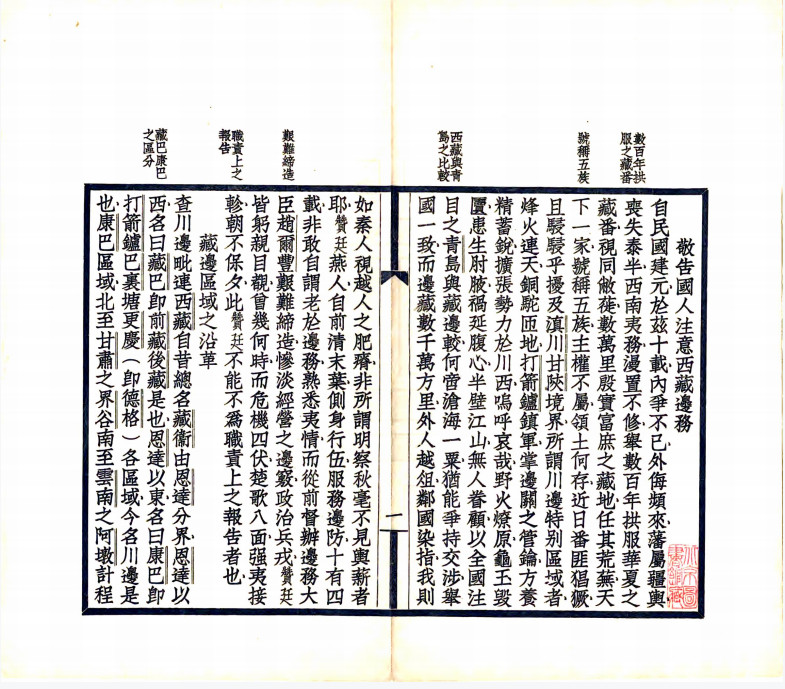 數百年拱
服之藏番
號稱五族
西藏與青
島之比較
敬告國人注意西藏邊務
自民國建元於茲十載內爭不已外侮頻來藩屬疆輿
喪失泰半西南夷務漫置不修舉數百年拱服華夏之
藏番視同敝蓰數萬里殷實富庶之藏地任其荒蕪天
下一家號稱五族主權不屬領土何存近日番匪猖獗
且駸駸乎擾及滇川甘陝境界所謂川邊特別區域者
烽火連天銅駝匝地打箭鑪鎮軍掌邊關之管鑰方養
精蓄銳擴張勢力於川西嗚呼哀哉野火燎原龜玉毀
匱患生肘腋禍延腹心半壁江山無人眷顧以全國注
目之青島與藏邊較何啻滄海一粟猶能爭持交涉舉
國一致而邊藏數千萬方里外人越俎鄰國染指我則
北京圖
書館藏
一
艱難締造
職責上之
報告
藏巴康巴
之區分
如秦人視越人之肥瘠非所謂明察秋毫不見輿薪者
耶贊廷燕人自前清末葉側身行伍服務邊防十有四
載非敢自謂老於邊務熟悉夷情而從前督辦邊務大
臣趙爾豐艱難締造慘淡經營之邊竅政治兵戎贊廷
皆躬親目覩曾幾何時而危機四伏楚歌八面强夷接
軫朝不保夕此贊廷不能不爲職責上之報告者也
藏邊區域之沿革
查川邊毗連西藏自昔總名藏衞由恩達分界恩達以
西名曰藏巴卽前藏後藏是也恩達以東名曰康巴卽
打箭鑪巴裏塘更慶（卽德格）各區域今名川邊是
也康巴區域北至甘肅之界谷南至雲南之阿墩計程